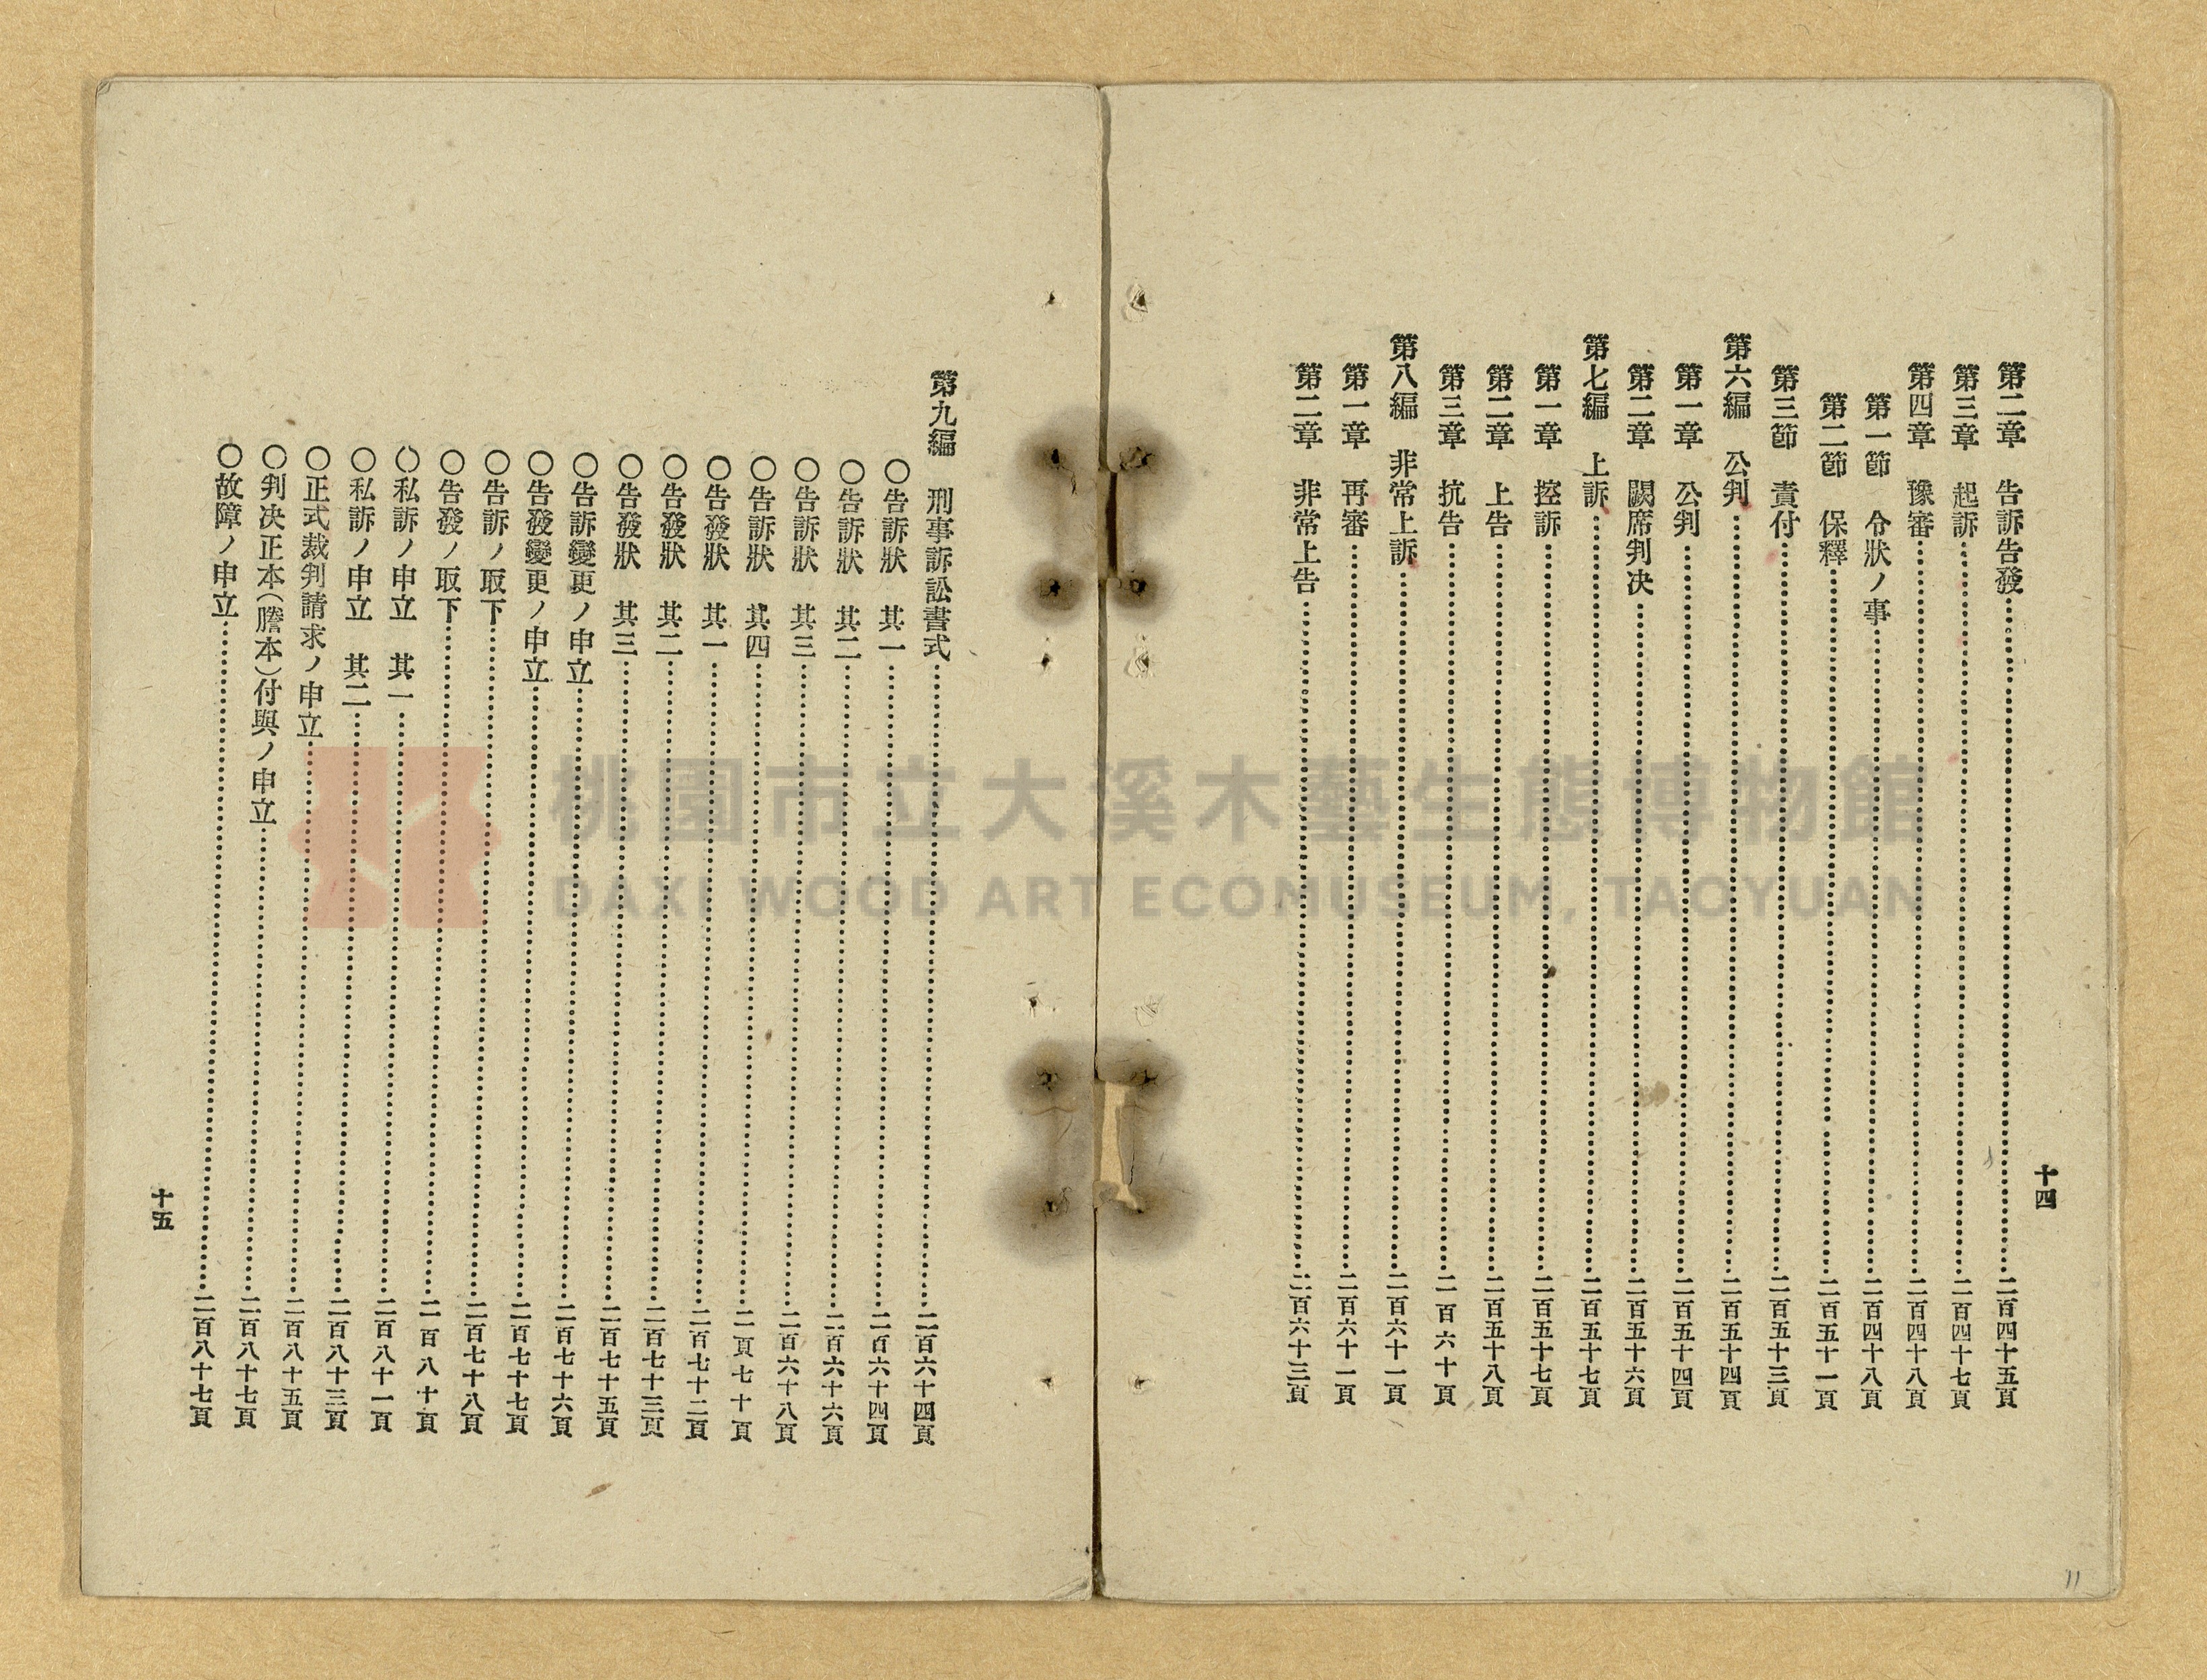 十四
第二章　告訴告發……二百四十五頁
第三章　起訴……二百四十七頁
第四章　豫審……二百四十八頁
第一節　令狀ノ事……二百四十八頁
第二節　保釋……二百五十一頁
第三節　責付……二百五十三頁
第六編　公判……二百五十四頁
第一章　公判……二百五十四頁
第二章　闕席判决……二百五十六頁
第七編　上訴……二百五十七頁
第一章　控訴……二百五十七頁
第二章　上告……二百五十八頁
第三章　抗告……二百六十頁
第八編　非常上訴……二百六十一頁
第一章　再審……二百六十一頁
第二章　非常上告……二百六十三頁
第九編　刑事訴訟書式……二百六十四頁
〇告訴狀　其一……二百六十四頁
〇告訴狀　其二……二百六十六頁
〇告訴狀　其三……二百六十八頁
〇告訴狀　其四……二頁七十頁
〇告發狀　其一……二百七十二頁
〇告發狀　其二……二百七十三頁
〇告發狀　其三……二百七十五頁
〇告訴變更ノ申立……二百七十六頁
〇告發變更ノ申立……二百七十七頁
〇告訴ノ取下……二百七十八頁
〇告發ノ取下……二百八十頁
〇私訴ノ申立　其一……二百八十一頁
〇私訴ノ申立　其二……二百八十三頁
〇正式裁判請求ノ申立……二百八十五頁
〇判决正本（謄本）付與ノ申立……二百八十七頁
〇故障ノ申立……二百八十七頁
十五
桃園市立大溪木藝生態博物館
DAXI WOOD ART ECOMUSEUM, TAOYUAN
11